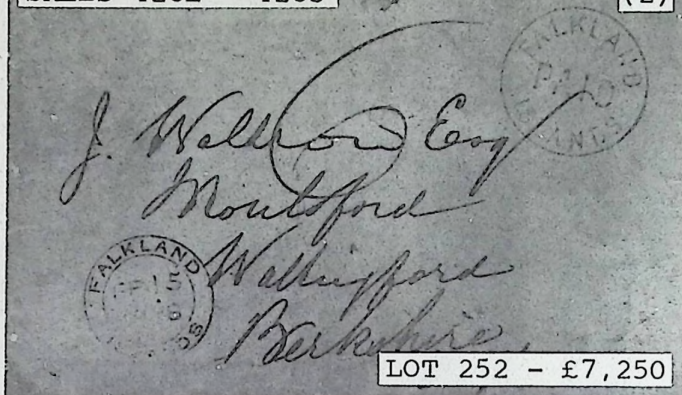 FALKLAND
PAID
ISLANDS
J. Waldron Esq
Moulsford
Wallingford
Berkshire
FALKLAND
LOT 252 - £7,250